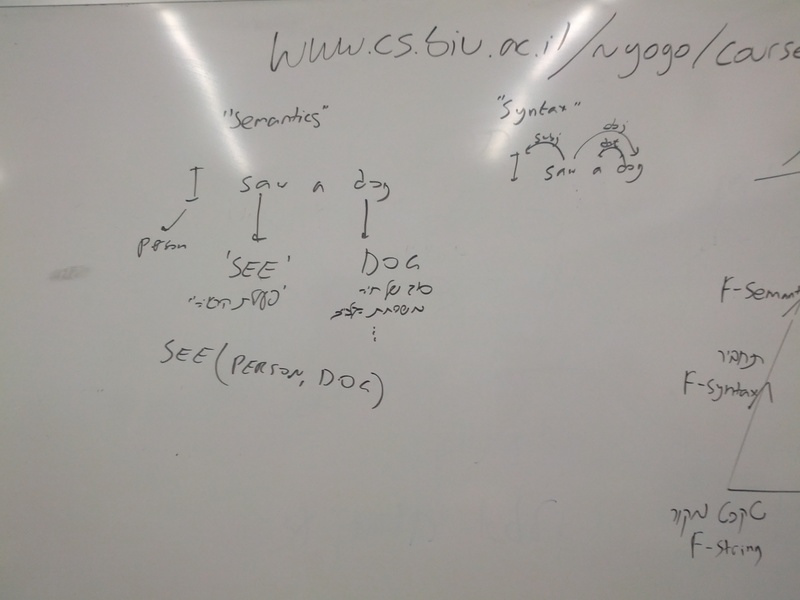 www.cs.biu.ac.il/~yogo/course
"Semantics"
I saw a dog
person
'SEE' DOG
"פעולת הראיה"
סוג של חיה
משפחת הכלב
⋮
SEE(PERSON, DOG)
"Syntax"
subj obj
det
I saw a dog
F-Semant
תחביר
F-Syntax
טקסט מקור
F-String